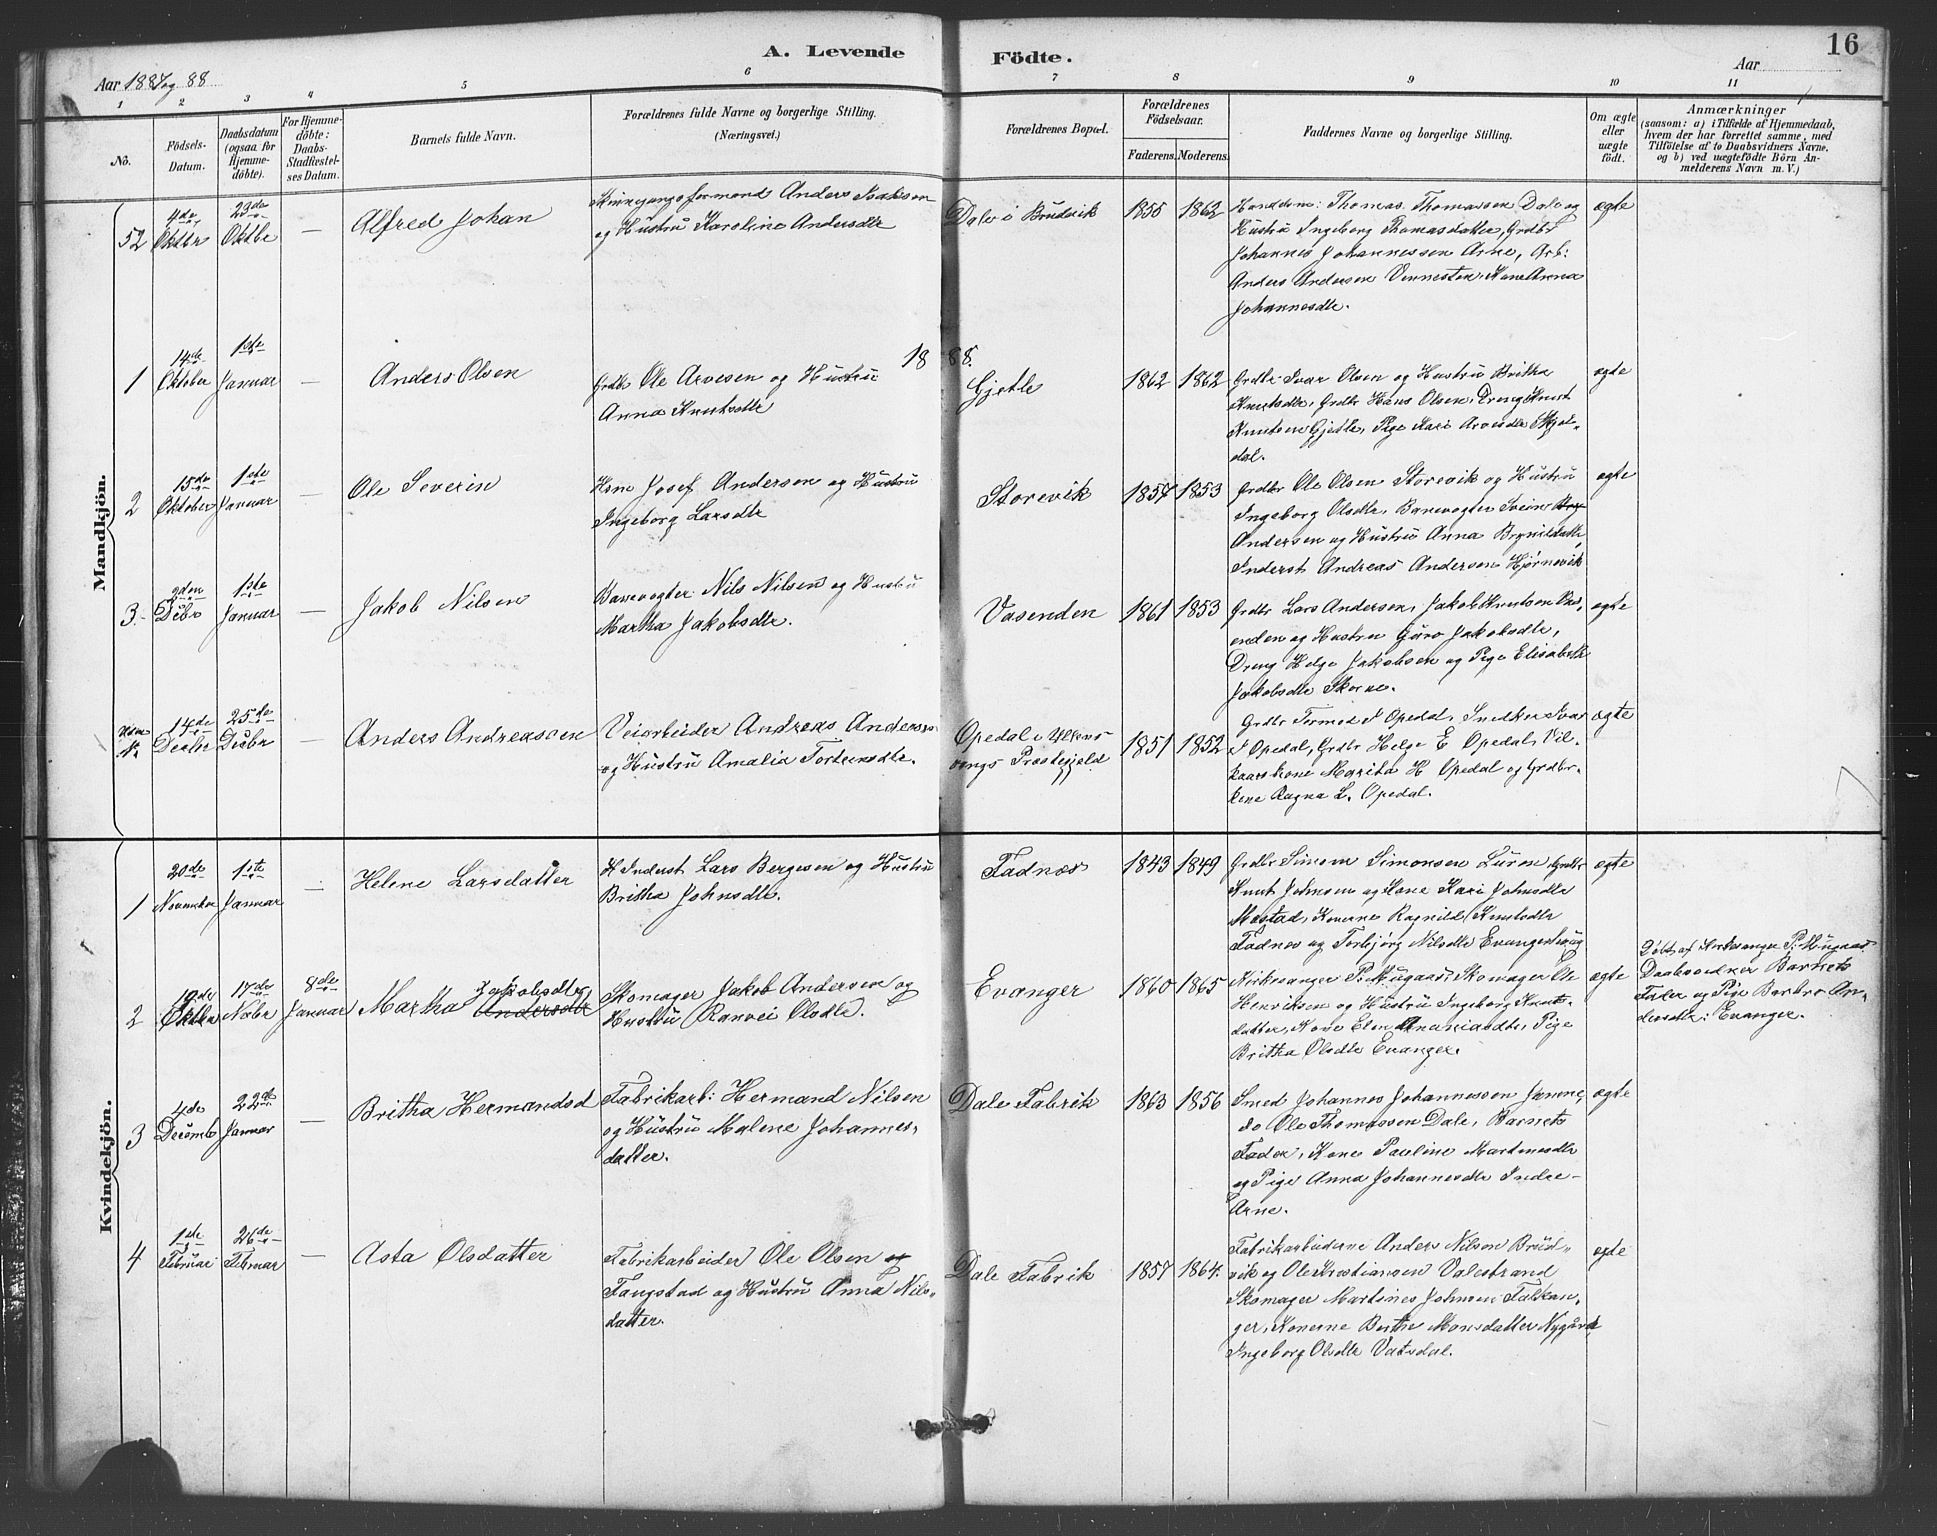 A. Levende Födte.
16
Aar 1887 og 88
Aar
1 2 3 4 5 6 7 8 9 10 11
No.
Födsels-Datum.
Daabsdatum (ogsaa for Hjemmedöbte).
For Hjemmedöbte: Daabs-Stadfæstelses Datum.
Barnets fulde Navn.
Forældrenes fulde Navne og borgerlige Stilling. (Næringsvei.)
Forældrenes Bopæl.
Forældrenes Födselsaar.
Faderens. Moderens.
Faddernes Navne og borgerlige Stilling.
Om ægte eller uægte födt.
Anmærkninger
(saasom: a) i Tilfælde af Hjemmedaab, hvem der har forrettet samme, med Tilföielse af to Daabsvidners Navne, og b) ved uægtefödte Börn Anmelderens Navn m. V.)
Mandkjön.
52 4de Oktbr 29de Oktbr — Alfred Johan
Andersen
og Hustru Karoline Andersdtr
Dale i Bruvik 1855 1862
Thomas Thomassen Dale og
Hustru Ingeborg Thomasdatter, Grdbr
Johannes Johannessen Arne, Arb:
Anders Andersen Kone Anna
Johannesdtr.
ægte
1888.
1 14de Oktober 1ste Januar — Anders Olsen
Grdbr Ole Arvesen og Hustru
Anna Knutsdtr
Gjetle 1862 1862
Grdbr Ivar Olsen og Hustru Britha
Knutsdtr, Grdbr Hans Olsen, Dreng Knut
Knutsen Gjetle, Pige Kari Skjel-
dal.
ægte
2 15de Oktober 1ste Januar — Ole Severin
Hsm Josef Andersen og Hustru
Ingeborg Larsdtr
Storevik 1857 1853
Grdbr Ole Olsen Storevik og Hustru
Ingeborg Olsdtr, Banevogter
Andersen og Hustru Anna Brynildsdtr
Inderst Andreas Andersen Hjørnevik
ægte
3 2den Dsbr 1ste Januar — Jakob Nilsen
Banevogter Nils Nilsen og Hustru
Martha Jakobsdtr.
Vasenden 1861 1853
Grdbr Lars Andersen, Jakob Knutsen Vas-
enden og Hustru Guro Jakobsdtr,
Dreng Helge Jakobsen og Pige Elisabeth
Jakobsdtr Skorve.
ægte
14de Decbr 25de Dcbr — Anders Andreassen
Veiarbeider Andreas Andersen
og Hustru Amalia Torbensdtr.
Opedal i Ullens-
vangs Præstegjeld
1851 1852
Grdbr Tormod J Opedal, Snedker Ivar
J Opedal, Grdbr Helge E Opedal, Vil-
kaarskone Marita H Opedal og Grdbr-
kone Ragna L. Opedal.
ægte
Kvindekjön.
1 20de November 1ste Januar — Helene Larsdatter
Inderst Lars Bergesen og Hustru
Britha Johnsdtr.
Fadnes 1843 1849
Grdbr Simon Simonsen Grdbr
Knut Johnsen og Kone Kari Johnsdtr
Mestad, Konerne Ragnild Knutsdtr
Fadnes og Torbjørg Nilsdtr
ægte
2 Oktbr 17de Nobr 8de Januar Martha Jakobsdtr Andersdtr
Skomager Jakob Andersen og
Hustru Ranvei Olsdtr.
Evanger 1860 1865
Kirkesanger P. Mugaas, Skomager Ole
Henriksen og Hustru Ingeborg Knuts-
datter, Kone Elen Ananiasdtr, Pige
Britha Olsdtr Evanger.
ægte
Døbt af Kirkesanger P. Mugaas
Daabsvidner Barnets
Fader og Pige Barbro An-
dersdtr: Evanger.
3 4de Decemb 22de Januar — Britha Hermandsd
Fabrikarb: Hermand Nilsen
og Hustru Malene Johannes-
datter.
Dale Fabrik 1863 1856
Smed Johannes Johannessen Samme,
do Ole Thomassen Dale, Barnets
Fader, Kone Pauline Martinesdtr
og Pige Anna Johannesdtr Indre-
Arne.
ægte
4 1ste Februar 26de Februar — Asta Olsdatter
Fabrikarbeider Ole Olsen og
Fangstad og Hustru Anna Nils-
datter.
Dale Fabrik 1857 1864.
Fabrikarbeiderne Anders Nilsen Brud-
vik og Ole Kristiansen Valestrand
Skomager Martines Johnsen Falkan-
ger, Konerne Berthe Monsdatter Nygård
Ingeborg Olsdtr Vatsdal.
ægte